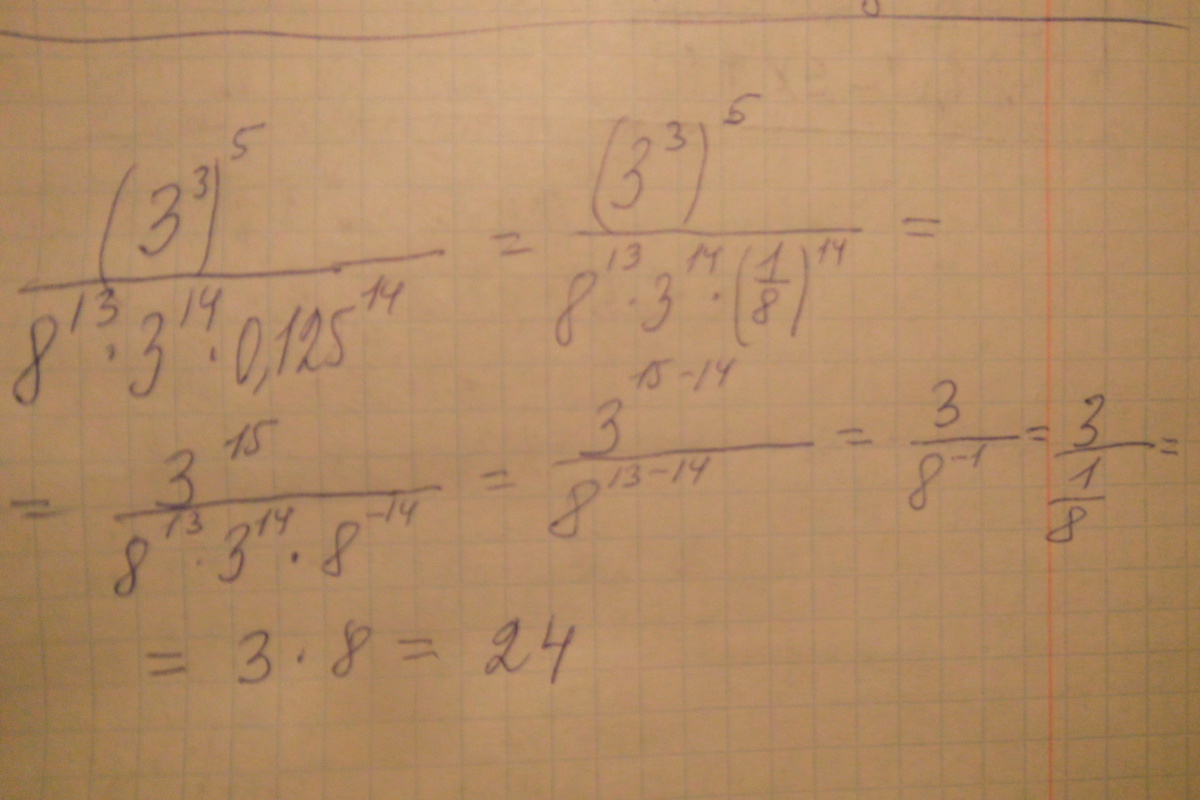 (3³)⁵ / (8¹³ · 3¹⁴ · 0,125¹⁴) = (3³)⁵ / (8¹³ · 3¹⁴ · (1/8)¹⁴) =
= 3¹⁵ / (8¹³ · 3¹⁴ · 8⁻¹⁴) = 3¹⁵⁻¹⁴ / 8¹³⁻¹⁴ = 3 / 8⁻¹ = 3 / (1/8) =
= 3 · 8 = 24